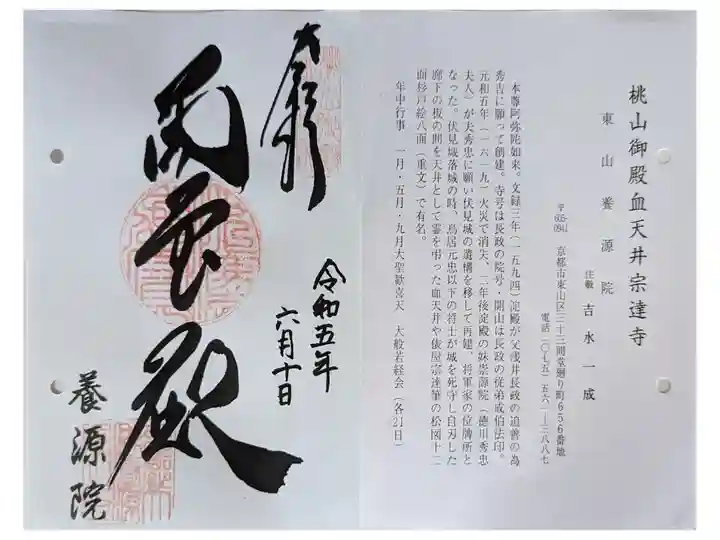 桃山御殿血天井宗達寺
東山養源院
住職 吉水一成
〒605-0941 京都市東山区三十三間堂廻り町656番地
電話 ○七五-五六一-三八八七
本尊阿弥陀如来。文録三年(一五九四)淀殿が父浅井長政の追善の為
秀吉に願って創建。寺号は長政の院号・開山は長政の従弟成伯法印。
元和五年(一六一九)火災で消失、二年後淀殿の妹崇源院(徳川秀忠
夫人)が夫秀忠に願い伏見城の遺構を移して再建、将軍家の位牌所と
なった。伏見城落城の時、鳥居元忠以下の将士が城を死守し自刃した
廊下の板の間を天井として霊を弔った血天井や俵屋宗達筆の松図十二
面杉戸絵八面(重文)で有名。
年中行事 一月・五月・九月大聖歓喜天 大般若経会(各21日)
令和五年
六月十日
養源院